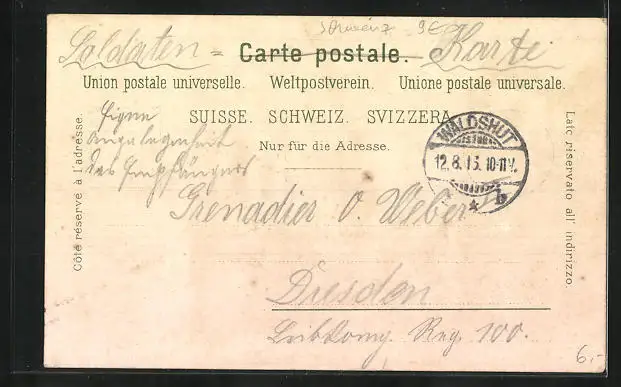 Schweiz 9E
Soldaten = Carte postale. Karte
Union postale universelle. Weltpostverein. Unione postale universale.
SUISSE. SCHWEIZ. SVIZZERA.
Nur für die Adresse.
Côté réservé à l'adresse.
Eigene
Angelegenheit
des Empfängers
WALDSHUT
12.8.13. 10-11V.
* b
Lato riservato all' indirizzo.
Grenadier O. Weber
Dresden
Leibkomp. Reg. 100.
6,-